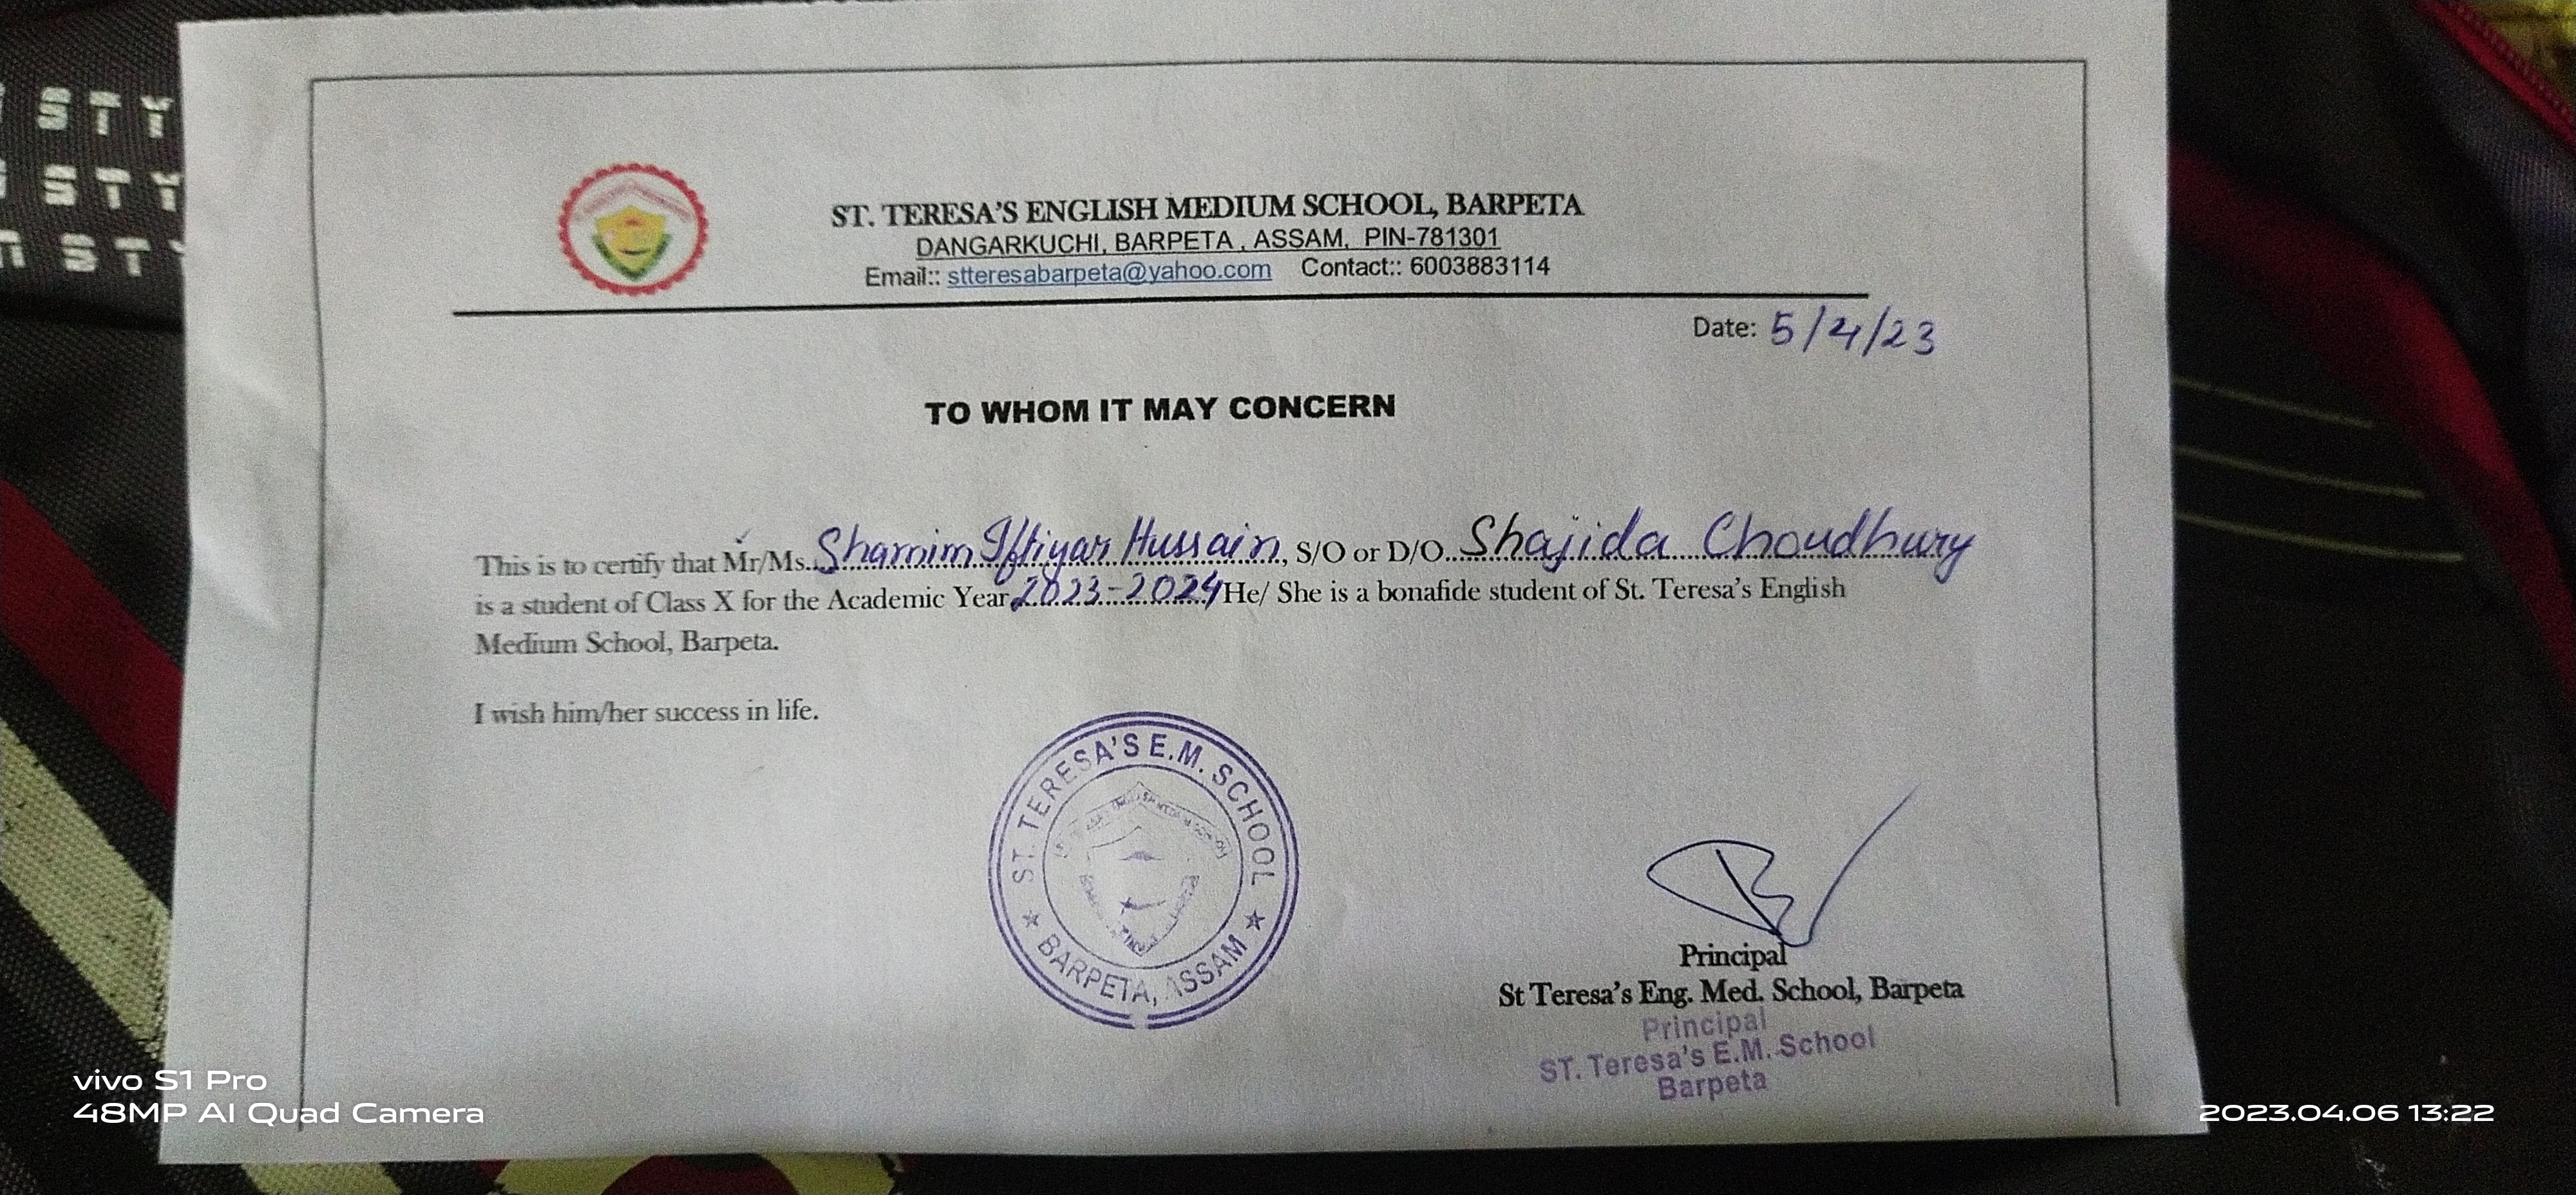 STY
STY
STY
ST. TERESA'S ENGLISH MEDIUM SCHOOL, BARPETA
DANGARKUCHI, BARPETA , ASSAM, PIN-781301
Email:: stteresabarpeta@yahoo.com Contact:: 6003883114
Date: 5/4/23
TO WHOM IT MAY CONCERN
This is to certify that Mr/Ms...Shamim Iftiyar Hussain, S/O or D/O...Shajida Choudhury
is a student of Class X for the Academic Year 2023-2024 He/ She is a bonafide student of St. Teresa's English
Medium School, Barpeta.
I wish him/her success in life.
ST. TERESA'S E.M. SCHOOL
★ BARPETA, ASSAM ★
Principal
St Teresa's Eng. Med. School, Barpeta
Principal
ST. Teresa's E.M. School
Barpeta
vivo S1 Pro
48MP AI Quad Camera
2023.04.06 13:22